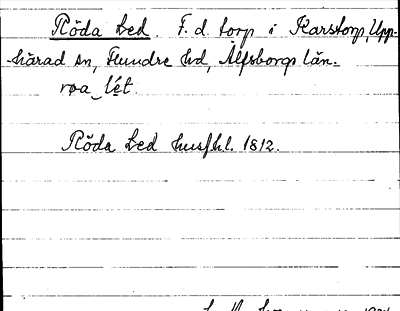 Röda Led. F.d. torp i Karstorp, Upp-
härad sn, Flundre hd, Älfsborgs län.
røa lét.
Röda Led husfhl. 1812.